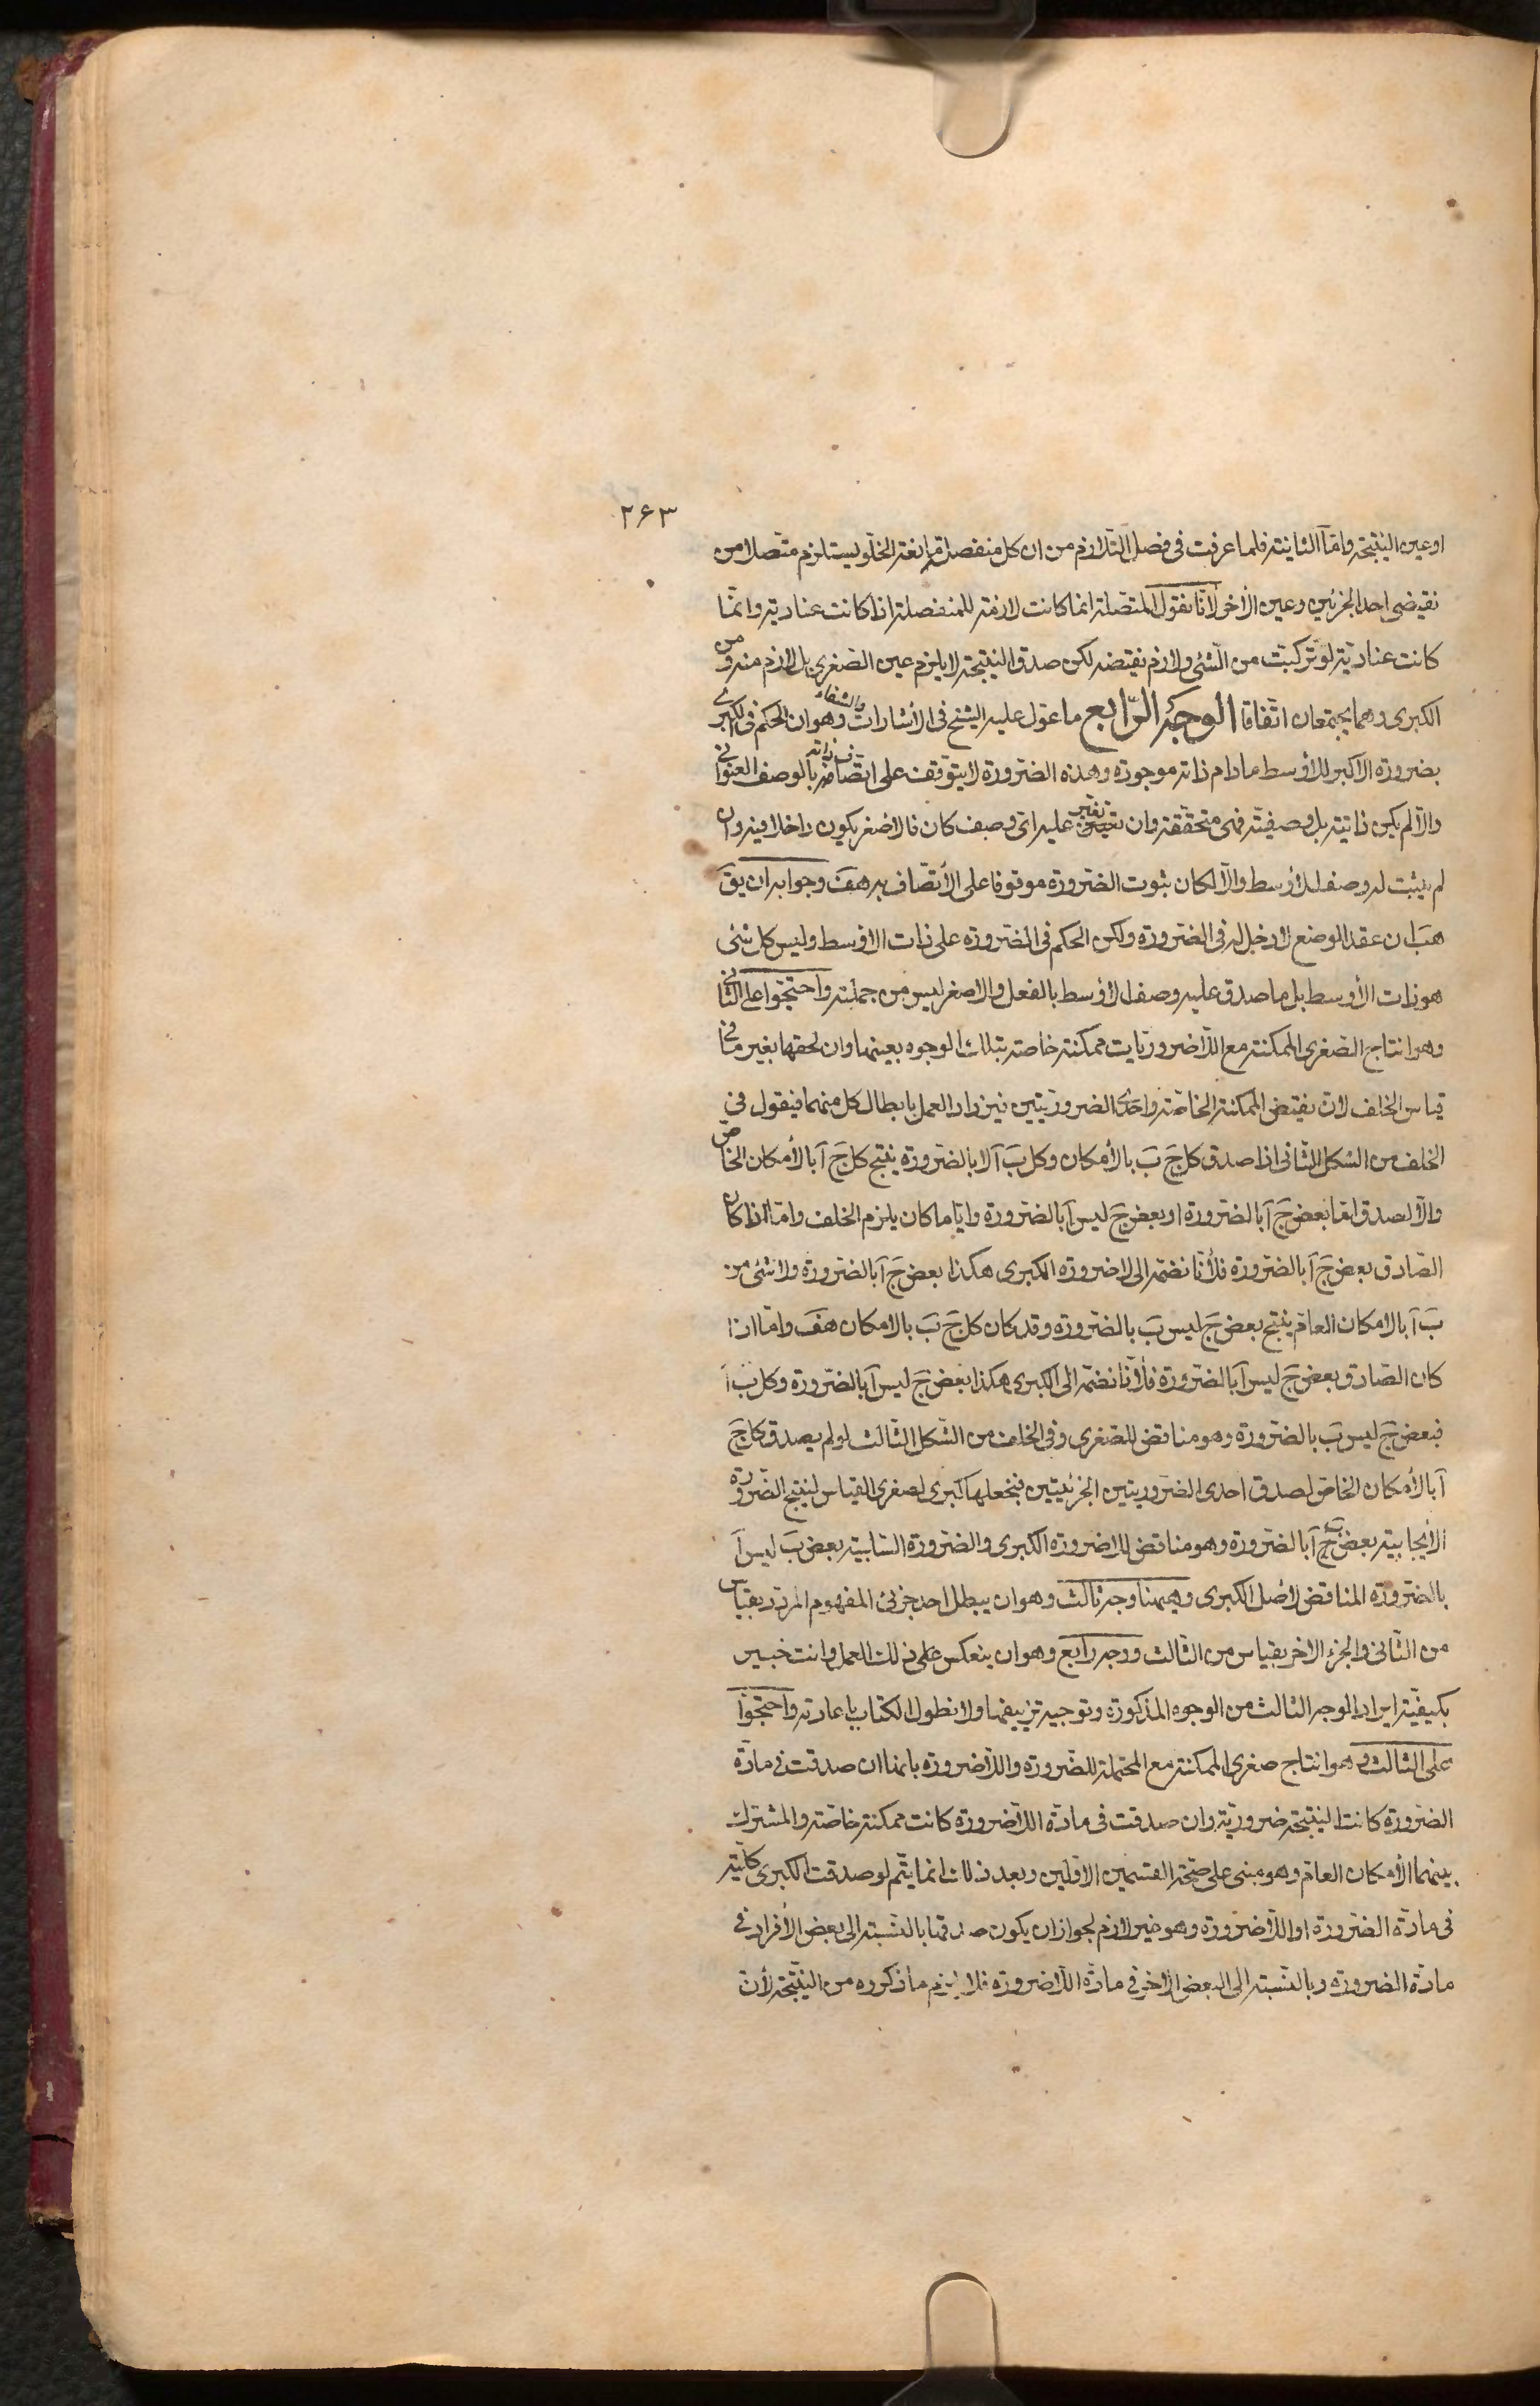 ٢۶٣
او عين النتيجة وامّا الثانية فلما عرفت فى فصل التّلازم من ان كل منفصلة مانعة الخلوّ يستلزم متّصلا من
نقيضى احد الجزئين وعين الآخر لأنّا نقول المتّصلة انما كانت لازمة للمنفصلة اذا كانت عناديّة وانّما
كانت عناديّة لو تركّبت من الشّئ ولازم نقيضه لكن صدق النتيجة لا يلزم عين الصّغرى بل لازم منه ومن
الكبرى وهما يجتمعان اتّفاقا الوجه الرّابع ما عوّل عليه الشيخ فى الأشارات والشفاء وهو ان الحكم فى الكبرى
بضرورة الأكبر للأوسط مادام ذاته موجودة وهذه الضّرورة لا يتوقّف على اتّصاف ذاته بالوصف العنوانى
والّا لم يكن ذاتيّة بل وصفيّة فهى متحقّقة وان تغيّر عليه اىّ وصف كان فالاصغر يكون داخلا فيه وان
لم يثبت له وصف الأوسط والّا لكان ثبوت الضّرورة موقوفا على الأتّصاف به هف وجوابه ان يق
هب ان عقد الوضع لا دخل له فى الضّرورة ولكن الحكم فى الضّرورة على ذات الاوسط وليس كل شئ
هو ذات الأوسط بل ما صدق عليه وصف الأوسط بالفعل والاصغر ليس من جملته واحتجّوا على الثّانى
وهو انتاج الصّغرى الممكنة مع اللّاضروريّات ممكنة خاصة بتلك الوجوه بعينها وان لحقها تغيّر ما فى
قياس الخلف لانّ نقيض الممكنة الخاصّة واحدى الضّروريّتين فيزداد العمل بابطال كل منهما فيقول فى
الخلف من الشكل الثّانى اذا صدق كل جَ بَ بالأمكان وكل بَ آ لا بالضّرورة ينتج كل جَ آ بالأمكان الخاصّ
والّا لصدق امّا بعض جَ آ بالضّرورة او بعض جَ ليس آ بالضّرورة وايّا ما كان يلزم الخلف وامّا اذا كان
الصّادق بعض جَ آ بالضّرورة فلأنّا نضمّه الى لاضرورة الكبرى هكذا بعض جَ آ بالضّرورة ولا شئ من
بَ آ بالامكان العامّ ينتج بعض جَ ليس بَ بالضّرورة وقد كان كل جَ بَ بالامكان هف وامّا اذا
كان الصّادق بعض جَ ليس آ بالضّرورة فلأنّا نضمّه الى الكبرى هكذا بعض جَ ليس آ بالضّرورة وكل بَ آ
فبعض جَ ليس بَ بالضّرورة وهو مناقض للصّغرى وفى الخلف من الشّكل الثّالث لو لم يصدق كل جَ
آ بالأمكان الخاصّ لصدق احدى الضّروريتين الجزئيّتين فنجعلها كبرى لصغرى القياس لينتج الضّرورة
الأيجابية بعض بَ آ بالضّرورة وهو مناقض للاضرورة الكبرى والضّرورة السّلبيّة بعض بَ ليس آ
بالضّرورة المناقض لأصل الكبرى وهيهنا وجه ثالث وهو ان يبطل احد جزئى المفهوم المردّد بقياس
من الثّانى والجزء الاخر بقياس من الثّالث ووجه رابع وهو ان ينعكس على ذلك العمل وانت خبير
بكيفيّة ايراد الوجه الثالث من الوجوه المذكورة وتوجيه تزييفها ولا نطول الكتاب باعادته واحتجّوا
على الثالث وهو انتاج صغرى الممكنة مع المحتملة للضّرورة واللّاضرورة بانها ان صدقت فى مادّة
الضّرورة كانت النتيجة ضروريّة وان صدقت فى مادّة اللّاضرورة كانت ممكنة خاصّة والمشترك
بينهما الأمكان العامّ وهو مبنى على صحّة القسمين الاوّلين وبعد ذلك انما يتّم لو صدقت الكبرى كليّة
فى مادّة الضّرورة او اللّاضرورة وهو غير لازم لجواز ان يكون صدقها بالنّسبة الى بعض الأفراد فى
مادّة الضّرورة وبالنّسبة الى البعض الآخر فى مادّة اللّاضرورة فلا يلزم ما ذكروه من النّتيجة لأنّ